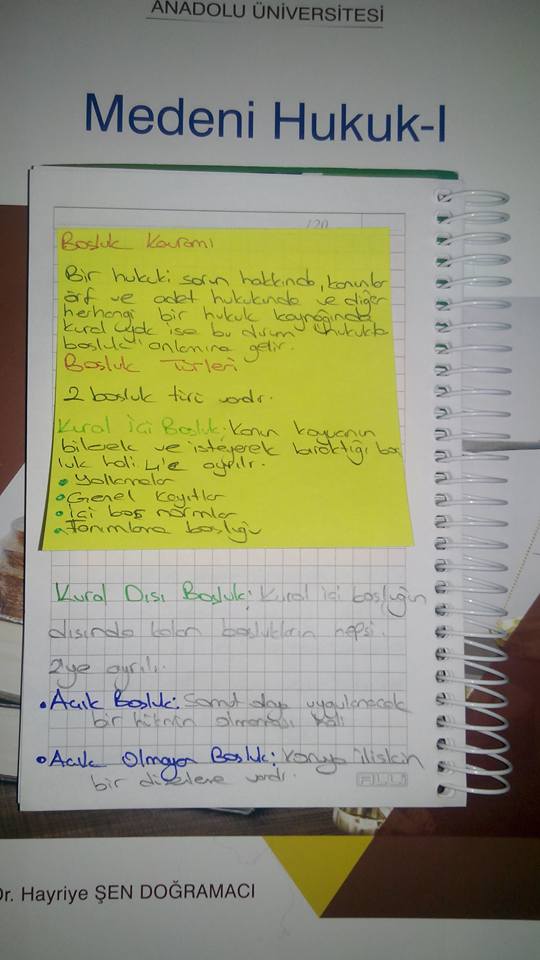 ANADOLU ÜNİVERSİTESİ
Medeni Hukuk-I
120
Boşluk Kavramı
Bir hukuki sorun hakkında, kanunlar
örf ve adet hukukunda ve diğer
herhangi bir hukuk kaynağında
kural yok ise bu durum hukukta
boşluk anlamına gelir.
Boşluk Türleri
2 boşluk türü vardır.
Kural İçi Boşluk: Kanun koyucunun
bilerek ve isteyerek bıraktığı boş
luk hali 4'e ayrılır.
• Yollamalar
• Genel Kayıtlar
• İçi boş normlar
• Tanımlama boşluğu
Kural Dışı Boşluk: Kural içi boşluğun
dışında kalan boşlukların hepsi.
2'ye ayrılır.
• Açık Boşluk: Somut olaya uygulanacak
bir hükmün olmaması hali
• Açık Olmayan Boşluk: Konuya ilişkin
bir düzenleme vardır.
Dr. Hayriye ŞEN DOĞRAMACI